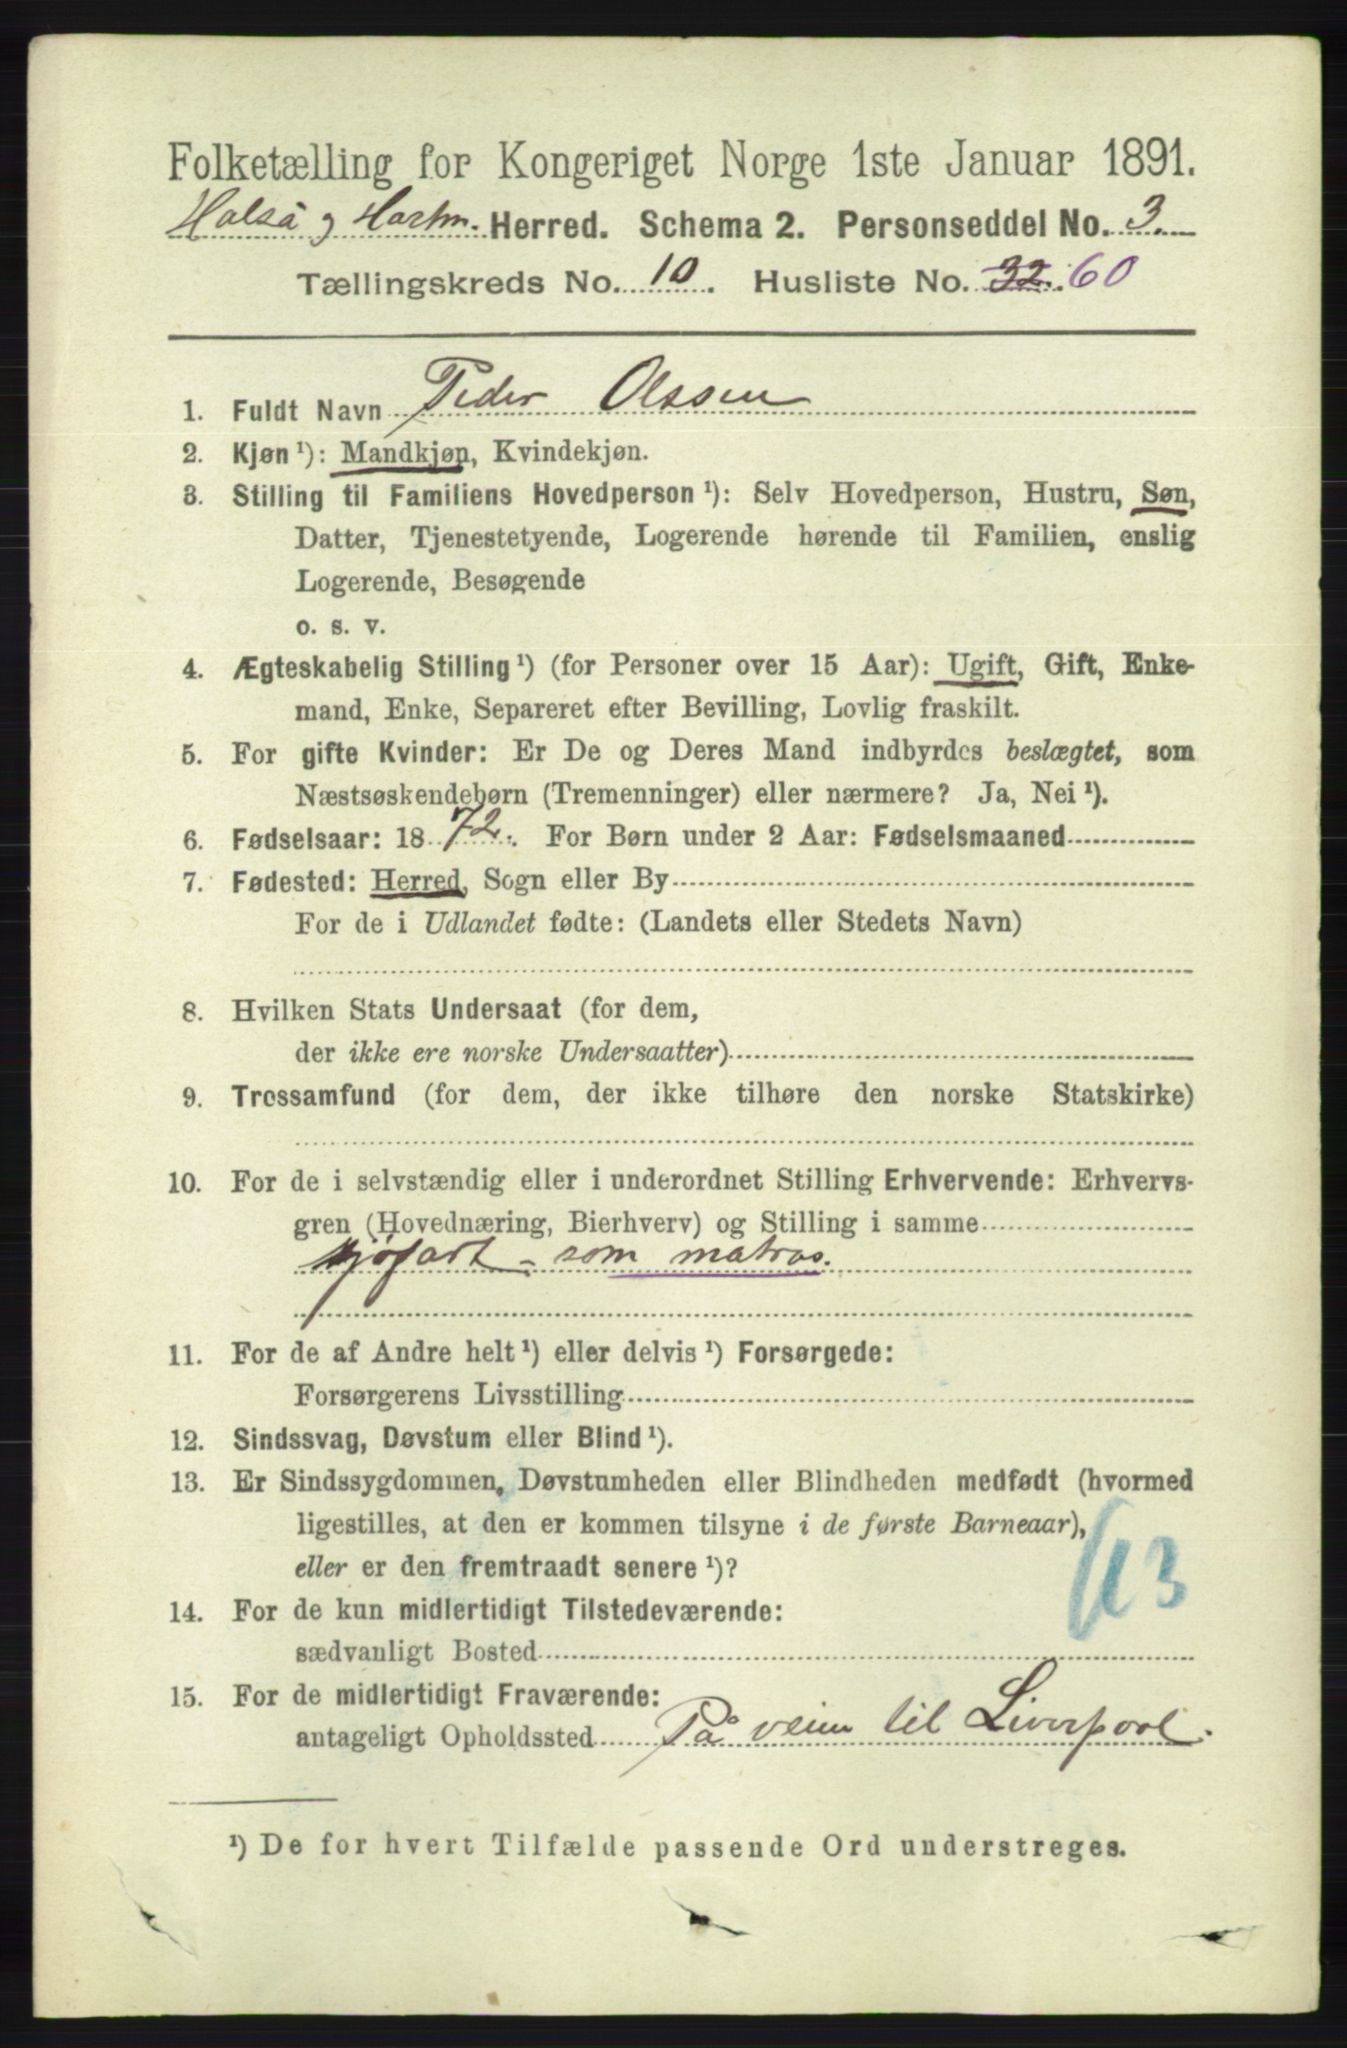 Folketælling for Kongeriget Norge 1ste Januar 1891.
Halså og Hartm. Herred. Schema 2. Personseddel No. 3.
Tællingskreds No. 10. Husliste No. 32. 60
1. Fuldt Navn Peder Olssen
2. Kjøn ¹): Mandkjøn, Kvindekjøn.
3. Stilling til Familiens Hovedperson ¹): Selv Hovedperson, Hustru, Søn,
Datter, Tjenestetyende, Logerende hørende til Familien, enslig
Logerende, Besøgende
o. s. v.
4. Ægteskabelig Stilling ¹) (for Personer over 15 Aar): Ugift, Gift, Enke-
mand, Enke, Separeret efter Bevilling, Lovlig fraskilt.
5. For gifte Kvinder: Er De og Deres Mand indbyrdes beslægtet, som
Næstsøskendebørn (Tremenninger) eller nærmere? Ja, Nei ¹).
6. Fødselsaar: 18 72. For Børn under 2 Aar: Fødselsmaaned
7. Fødested: Herred, Sogn eller By
For de i Udlandet fødte: (Landets eller Stedets Navn)
8. Hvilken Stats Undersaat (for dem,
der ikke ere norske Undersaatter)
9. Trossamfund (for dem, der ikke tilhøre den norske Statskirke)
10. For de i selvstændig eller i underordnet Stilling Erhvervende: Erhvervs-
gren (Hovednæring, Bierhverv) og Stilling i samme
sjøfart - som matros.
11. For de af Andre helt ¹) eller delvis ¹) Forsørgede:
Forsørgerens Livsstilling
12. Sindssvag, Døvstum eller Blind ¹).
13. Er Sindssygdommen, Døvstumheden eller Blindheden medfødt (hvormed
ligestilles, at den er kommen tilsyne i de første Barneaar),
eller er den fremtraadt senere ¹)?
14. For de kun midlertidigt Tilstedeværende:
sædvanligt Bosted
15. For de midlertidigt Fraværende:
antageligt Opholdssted På veien til Liverpool.
¹) De for hvert Tilfælde passende Ord understreges.